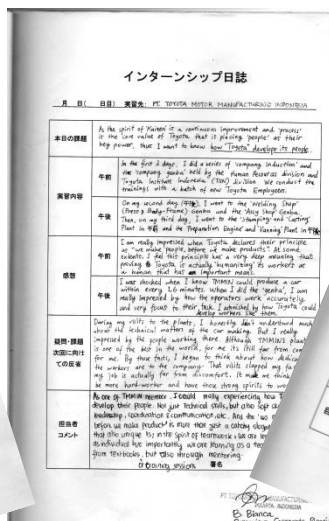 インターンシップ日誌
月 日( 日目) 実習先: PT. TOYOTA MOTOR MANUFACTURING INDONESIA
本日の課題
As the spirit of 'Kaizen' is a continuous improvement and 'process'
is the core value of Toyota that is placing 'people' as their
key power, thus I want to know how "Toyota" develope its people.
実習内容
午前
In the first 2 days, I did a series of 'company induction' and
the 'company genba' held by the Human Resources division and
'Toyota Institute Indonesia' (TDI) division. We conduct the
trainings with a batch of new Toyota Employees.
午後
On my second day (午後), I went to the 'Welding Shop'
(Press & Body-Frame) Genba and the 'Assy Shop' Genba.
Then, on my third day, I went to the 'Stamping' and 'Casting'
Plant in 午前 and the Preparation Engine and Vanning Plant in 午後
感想
午前
I am really impressed when Toyota declares their principle
as "we make people before we make products". At some
extents, I feel this principle has a very deep meaning that
proving Toyota is actually 'humanizing' its workers as
a human that has an important means.
午後
I was shocked when I know TMMIN could produce a car
within every 1.6 minutes. When I did the "genba", I am
really impressed by how the operators work accurately
and very focus to their task. I astonished by how Toyota could
develop workers like them.
疑問・課題
次回に向け
ての反省
During my visits to the plants, I honestly don't understand much
about the technical matters of the car making. But I really
impressed by the people working there. Although TMMIN's plant
is one of the best in the world, for me its still far from com
for me. By those facts, I began to think about how dedica
the workers are to the company. That visits slapped my fa
my job is actually far from discomfort. It make me think
be more hard-worker and have those strong spirits to wo
担当者
コメント
As one of TMMIN member, I could really experiencing how T
develop their people. Not just technical skills, but also soft sk
leadership, coordination & communication, etc. And the 'we m
before we make product' is more than just a catchy slogan
that also unique is; in the spirit of teamwork, we are lea
as individual but importantly we are learning as a team
from textbooks, but also through mentoring
署名
JAKARTA - INDONESIA
B. Bianca